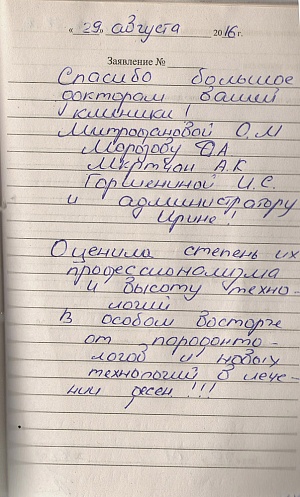 «29» августа 2016 г.
Заявление №
Спасибо большое
докторам вашей
клиники!
Митрофановой О.М
Морозову Д.А
Мкртчан А.К
Горшениной И.С.
и администратору
Ирине!
Оценила степень их
профессионализма
и высоту техно-
логий
В особом восторге
от пародонто-
логов и новых
технологий в лече-
нии десен!!!